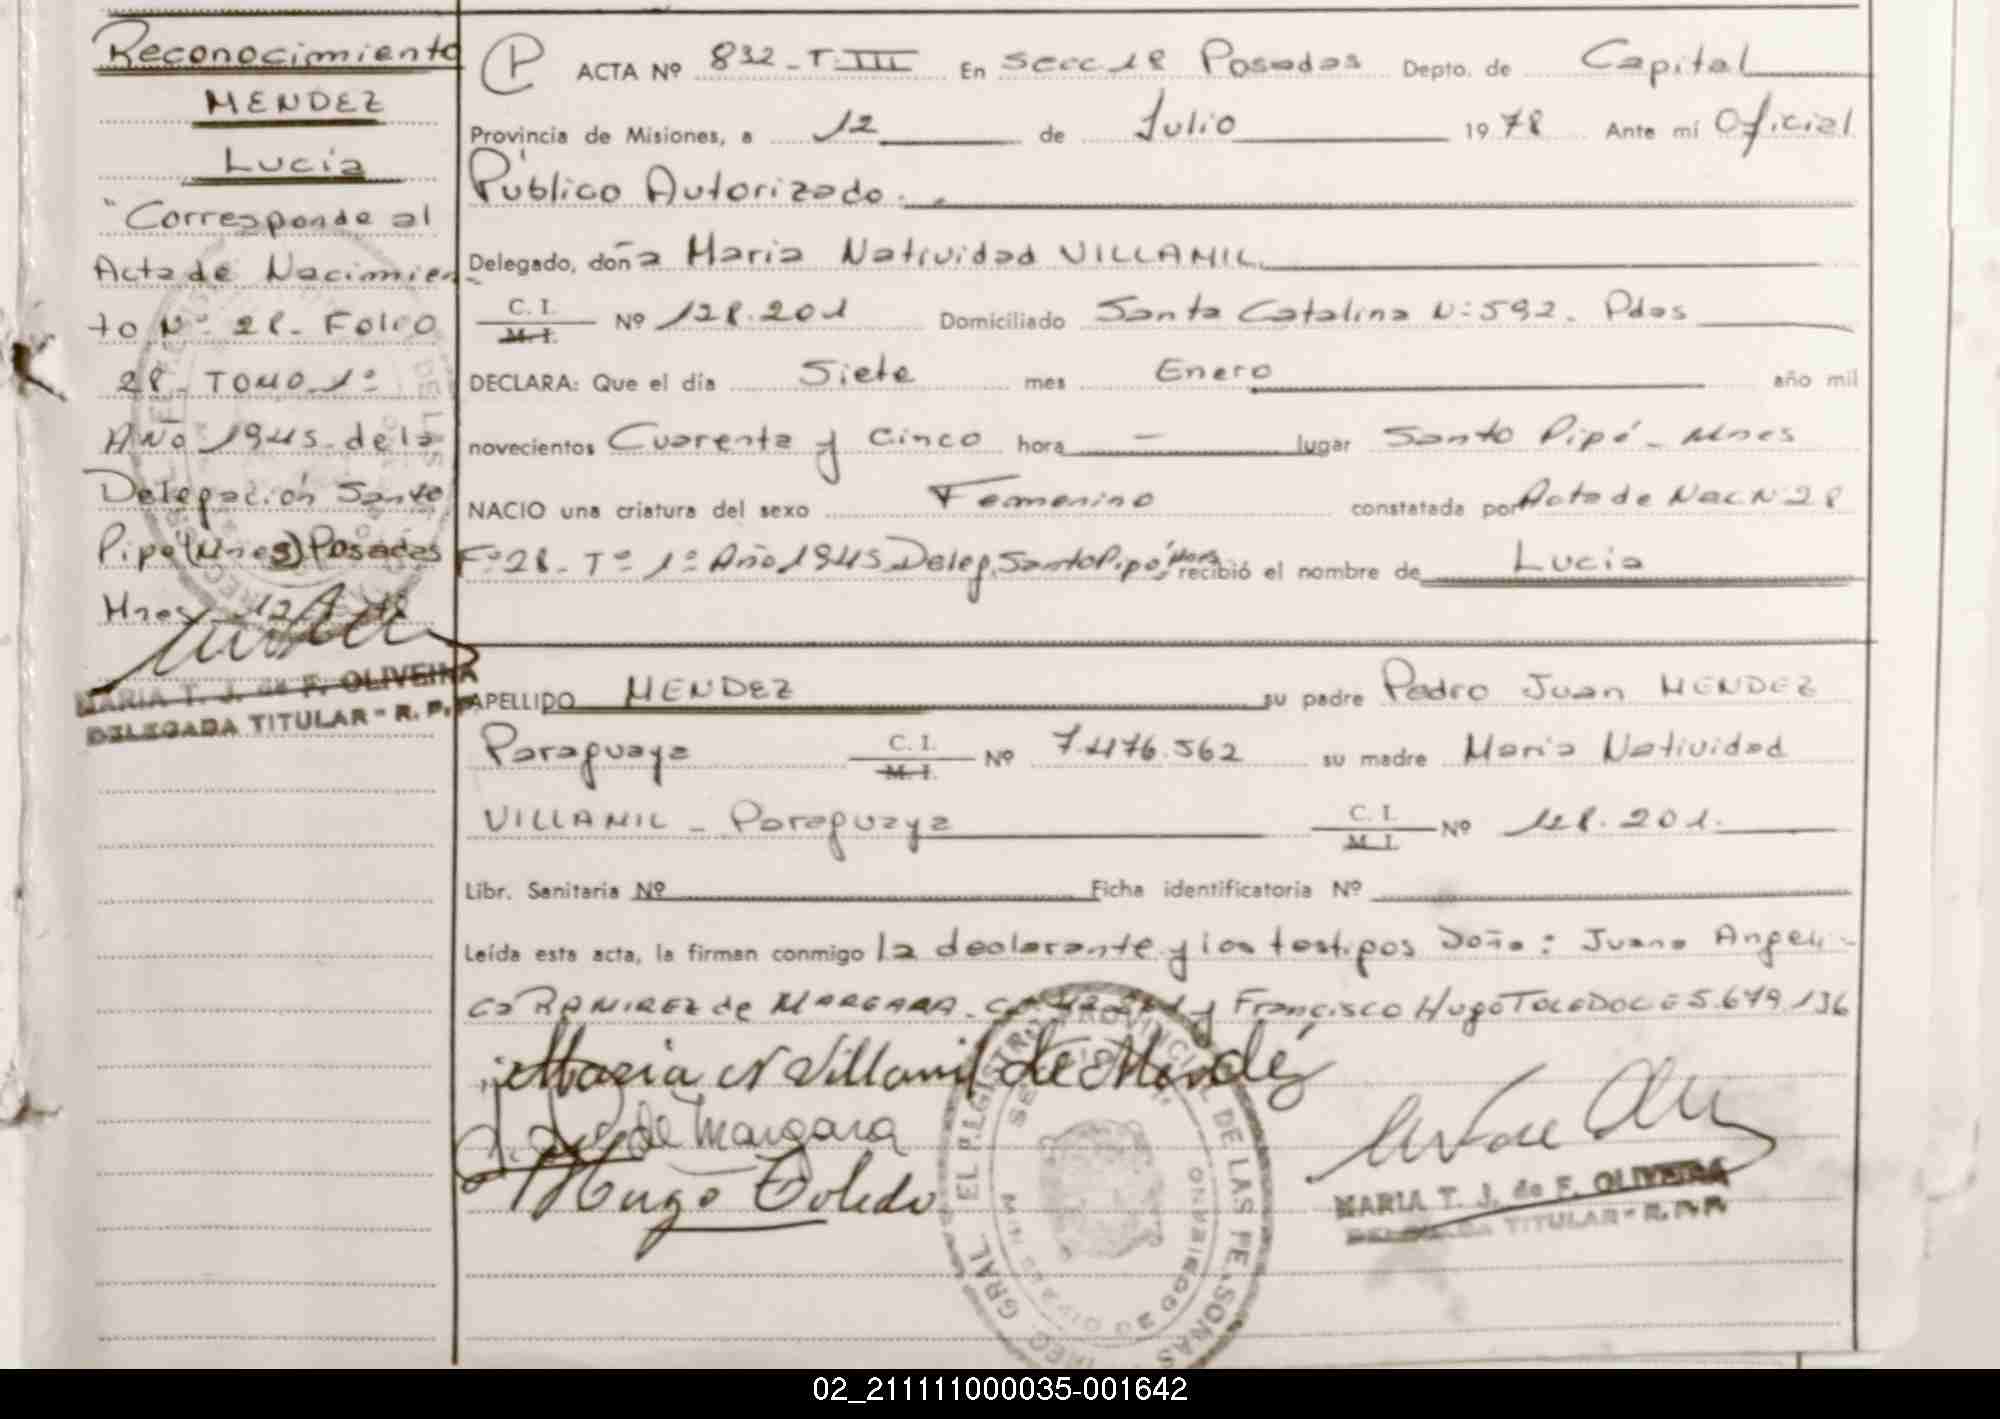 Reconocimiento
MENDEZ
Lucía
"Corresponde al
Acta de Nacimien-
to Nº 28. Folio
28- TOMO 1º
Año 1945 de la
Delegación Santo
Pipó (Mnes) Posadas
Mnes
MARIA T. J. de F. OLIVEIRA
DELEGADA TITULAR - R. P. P.
P ACTA Nº 832-T. III En Secc 1ª Posadas Depto. de Capital
Provincia de Misiones, a 12 de Julio 1978 Ante mí Oficial
Público Autorizado.
Delegado, doña Maria Natividad VILLAMIL
C. I.
M. I. Nº 128.201 Domiciliado Santa Catalina Nº 592. Pdas
DECLARA: Que el día Siete mes Enero año mil
novecientos Cuarenta y Cinco hora — lugar Santo Pipó - Mnes
NACIO una criatura del sexo Femenino constatada por Acta de Nac Nº 28
Fº 28- Tº 1º Año 1945 Deleg. Santo Pipó, Mnes recibió el nombre de Lucia
APELLIDO MENDEZ su padre Pedro Juan MENDEZ
Paraguaya C. I. M. I. Nº 7.476.562 su madre Maria Natividad
VILLAMIL - Paraguaya C. I. M. I. Nº 128.201.
Libr. Sanitaria Nº Ficha identificatoria Nº
Leída esta acta, la firman conmigo la declarante y los testigos Doña: Juana Angeli-
ca RAMIREZ de MARGARA. y Francisco Hugo TOLEDO CI 5.679.136
Maria N Villamil de Mendéz
de Margara
Hugo Toledo
GRAL. EL REGISTRO PROVINCIAL DE LAS PERSONAS
MARIA T. J. de F. OLIVEIRA
DELEGADA TITULAR - R. P. P.
02_211111000035-001642